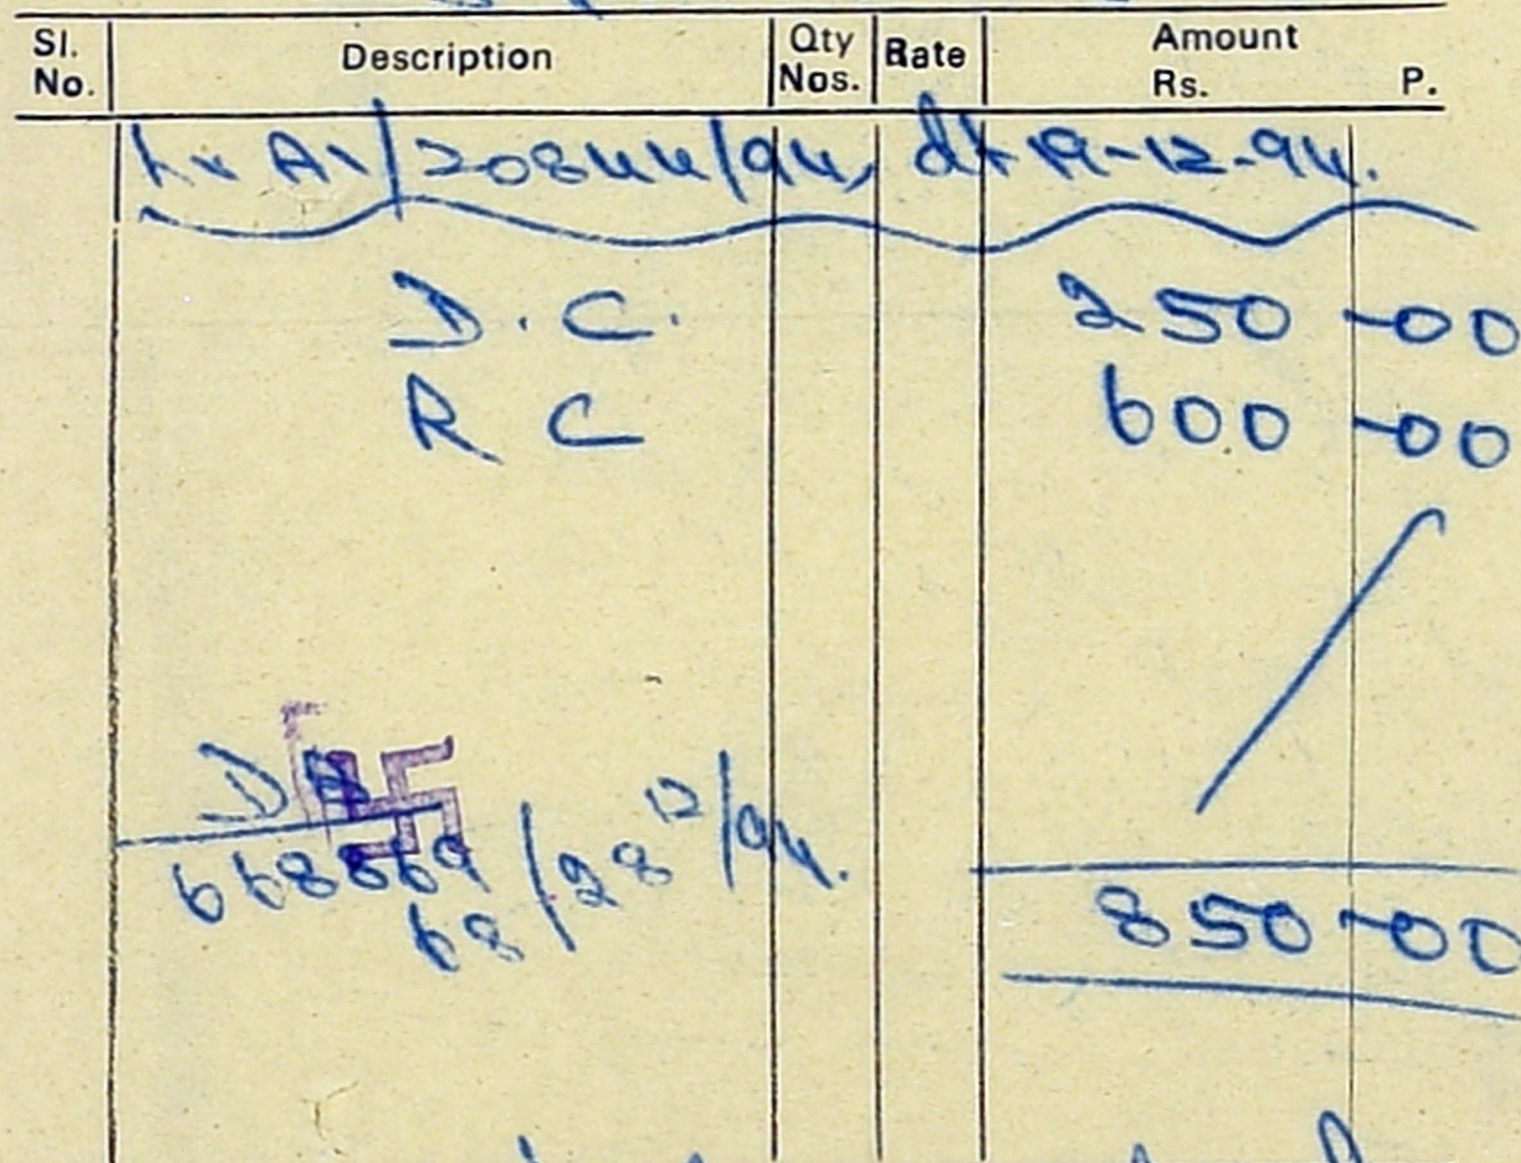 Sl. No. Description Qty Nos. Rate Amount Rs. P.
/20844/94, dt 19-12-94.
D.C. 250-00
R C 600-00
DD
668869 / 28 12/94.
68
850-00